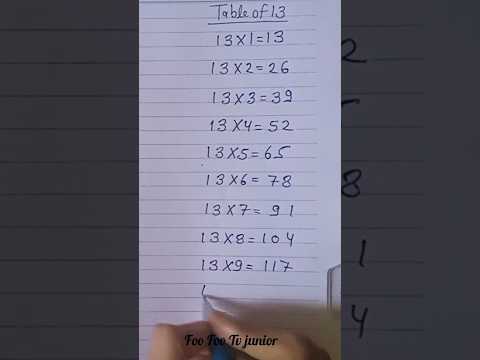 Table of 13
13X1=13
13X2=26
13X3=39
13X4=52
13X5=65
13X6=78
13X7=91
13X8=104
13X9=117
1
Foo Foo Tv junior
8
1
4